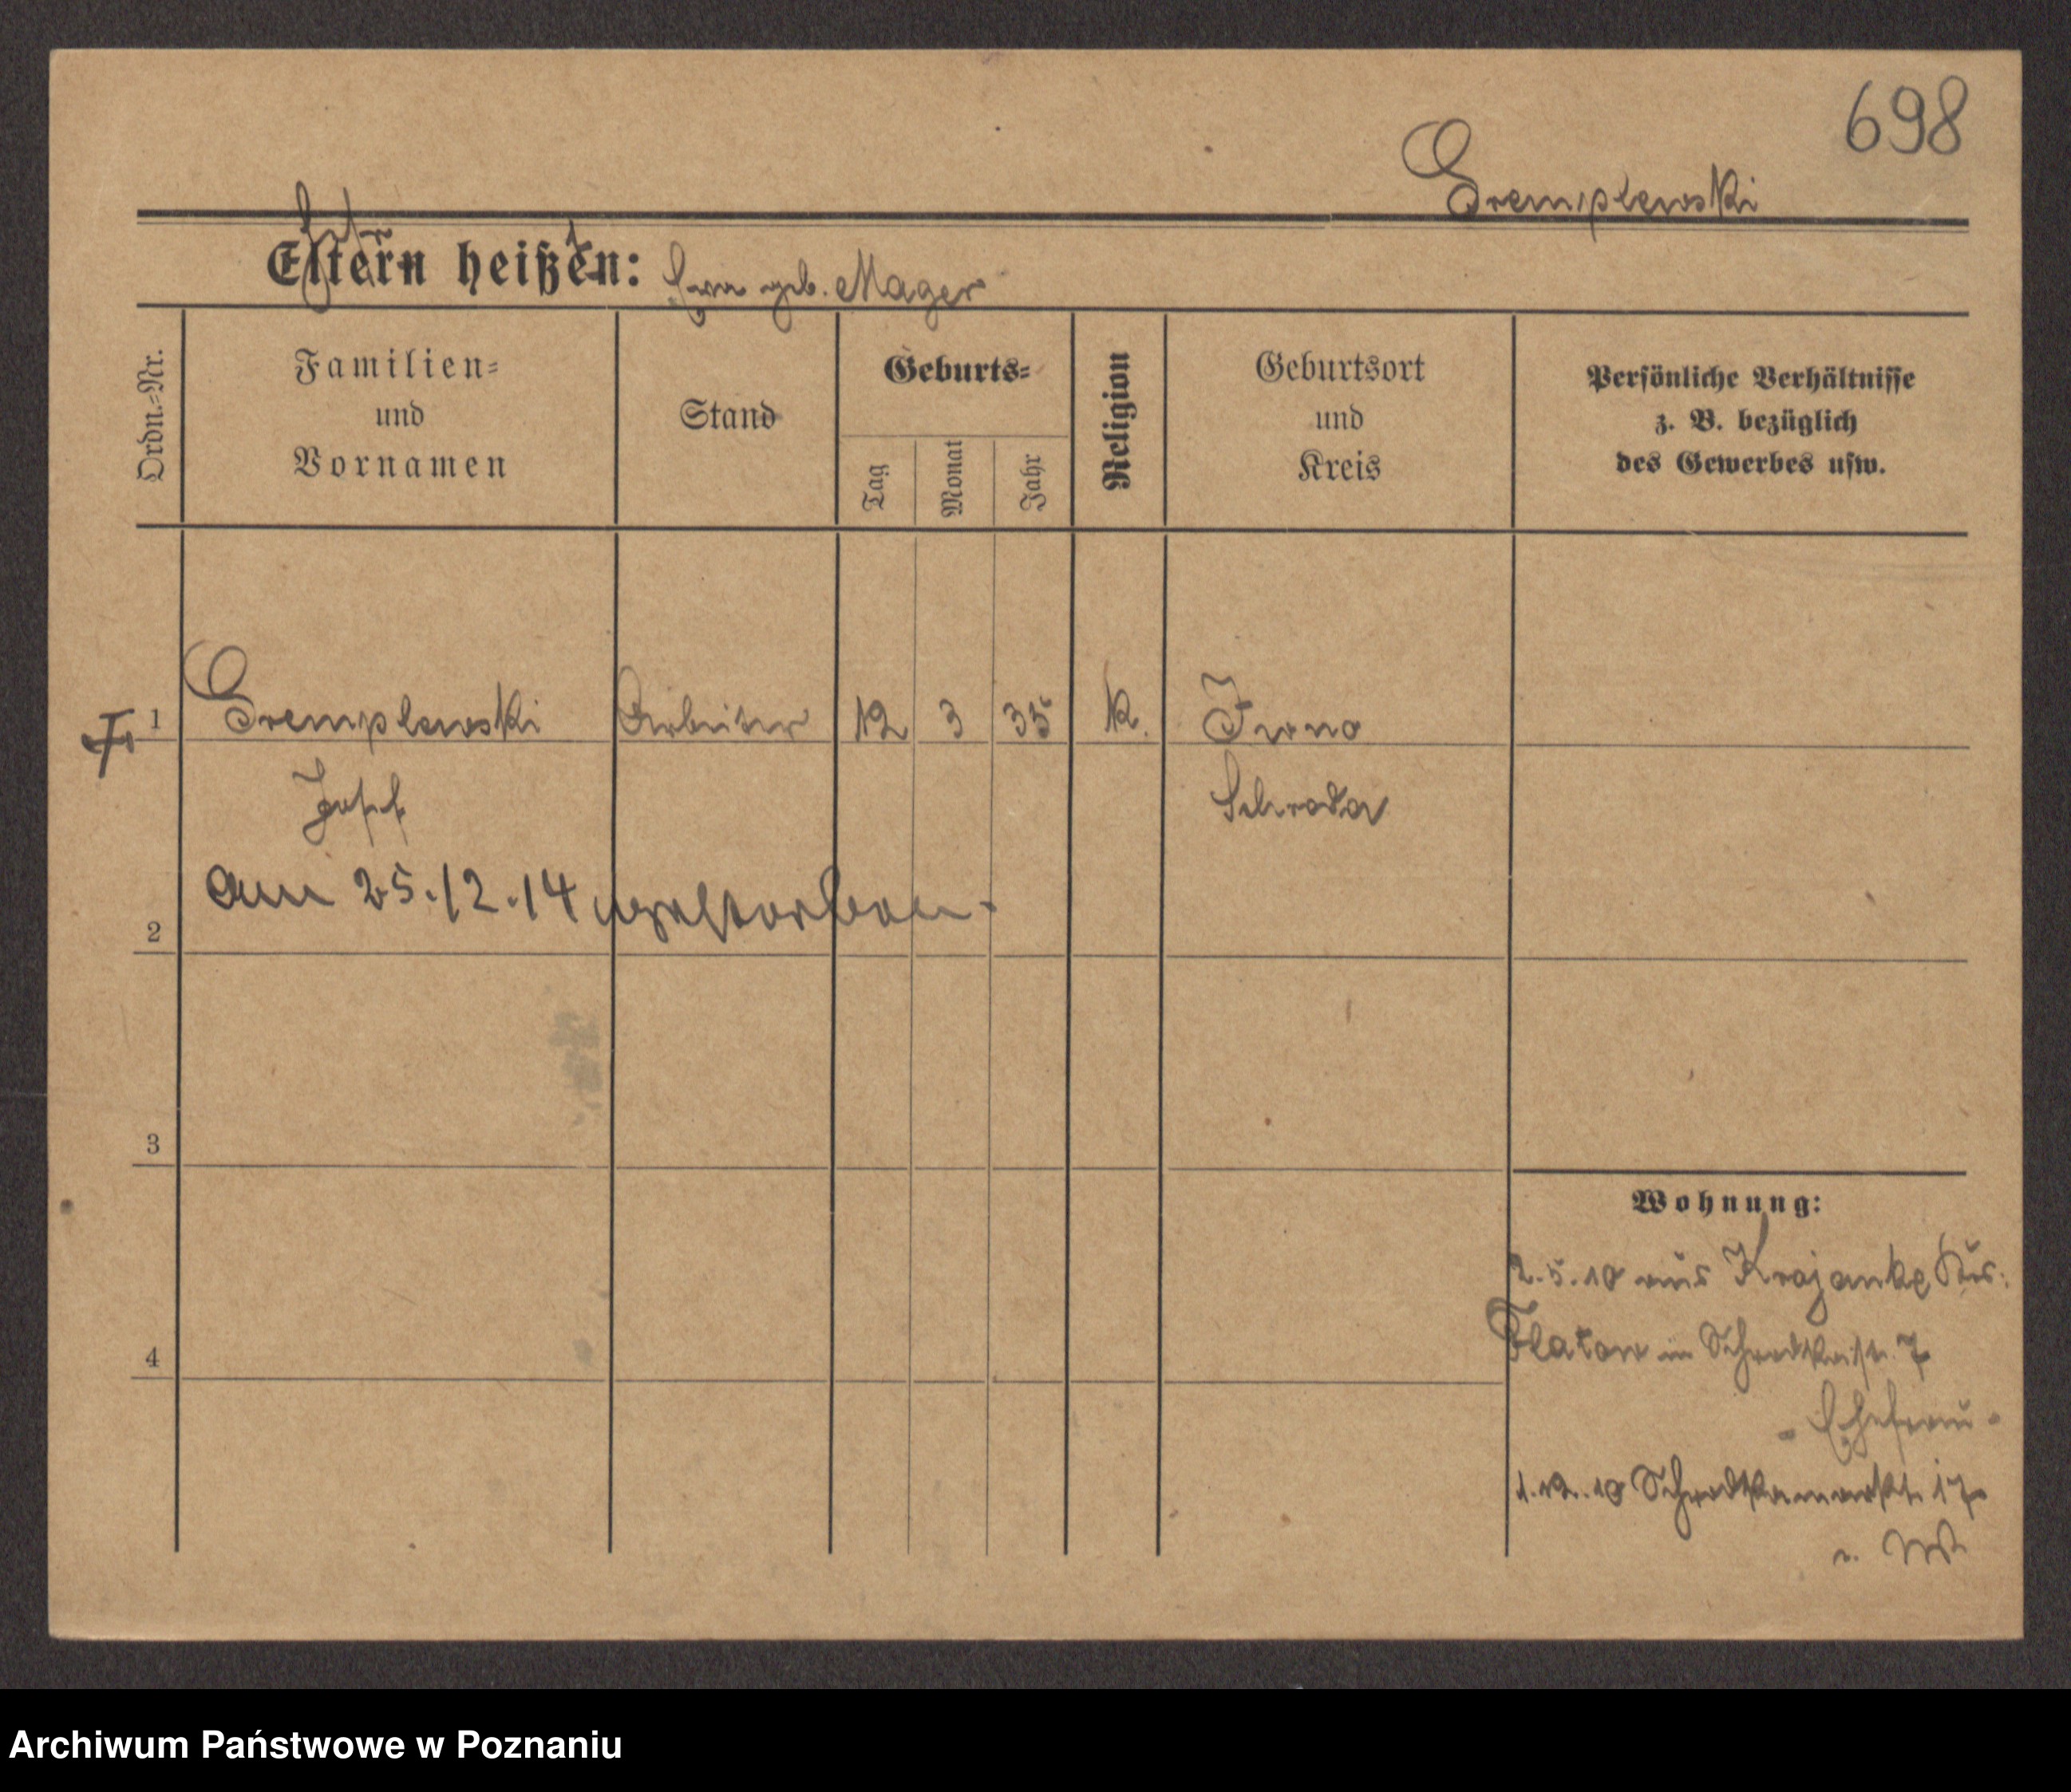 698
Gremplewski
Eltern heißen: Eva geb. Mager
Ordn.-Nr.
Familien-
und
Vornamen
Stand
Geburts-
Tag
Monat
Jahr
Religion
Geburtsort
und
Kreis
Persönliche Verhältnisse
z. B. bezüglich
des Gewerbes usw.
1 Gremplewski Arbeiter 12 3 35 k.
Schroda
Josef
am 25.12.14 gestorben.
2
3
4
Wohnung:
2.5.10 aus Krojanke
Flatow in Schrodkastr. 7
- Ehefrau -
1.12.10 Schrodkamarkt 17
Archiwum Państwowe w Poznaniu